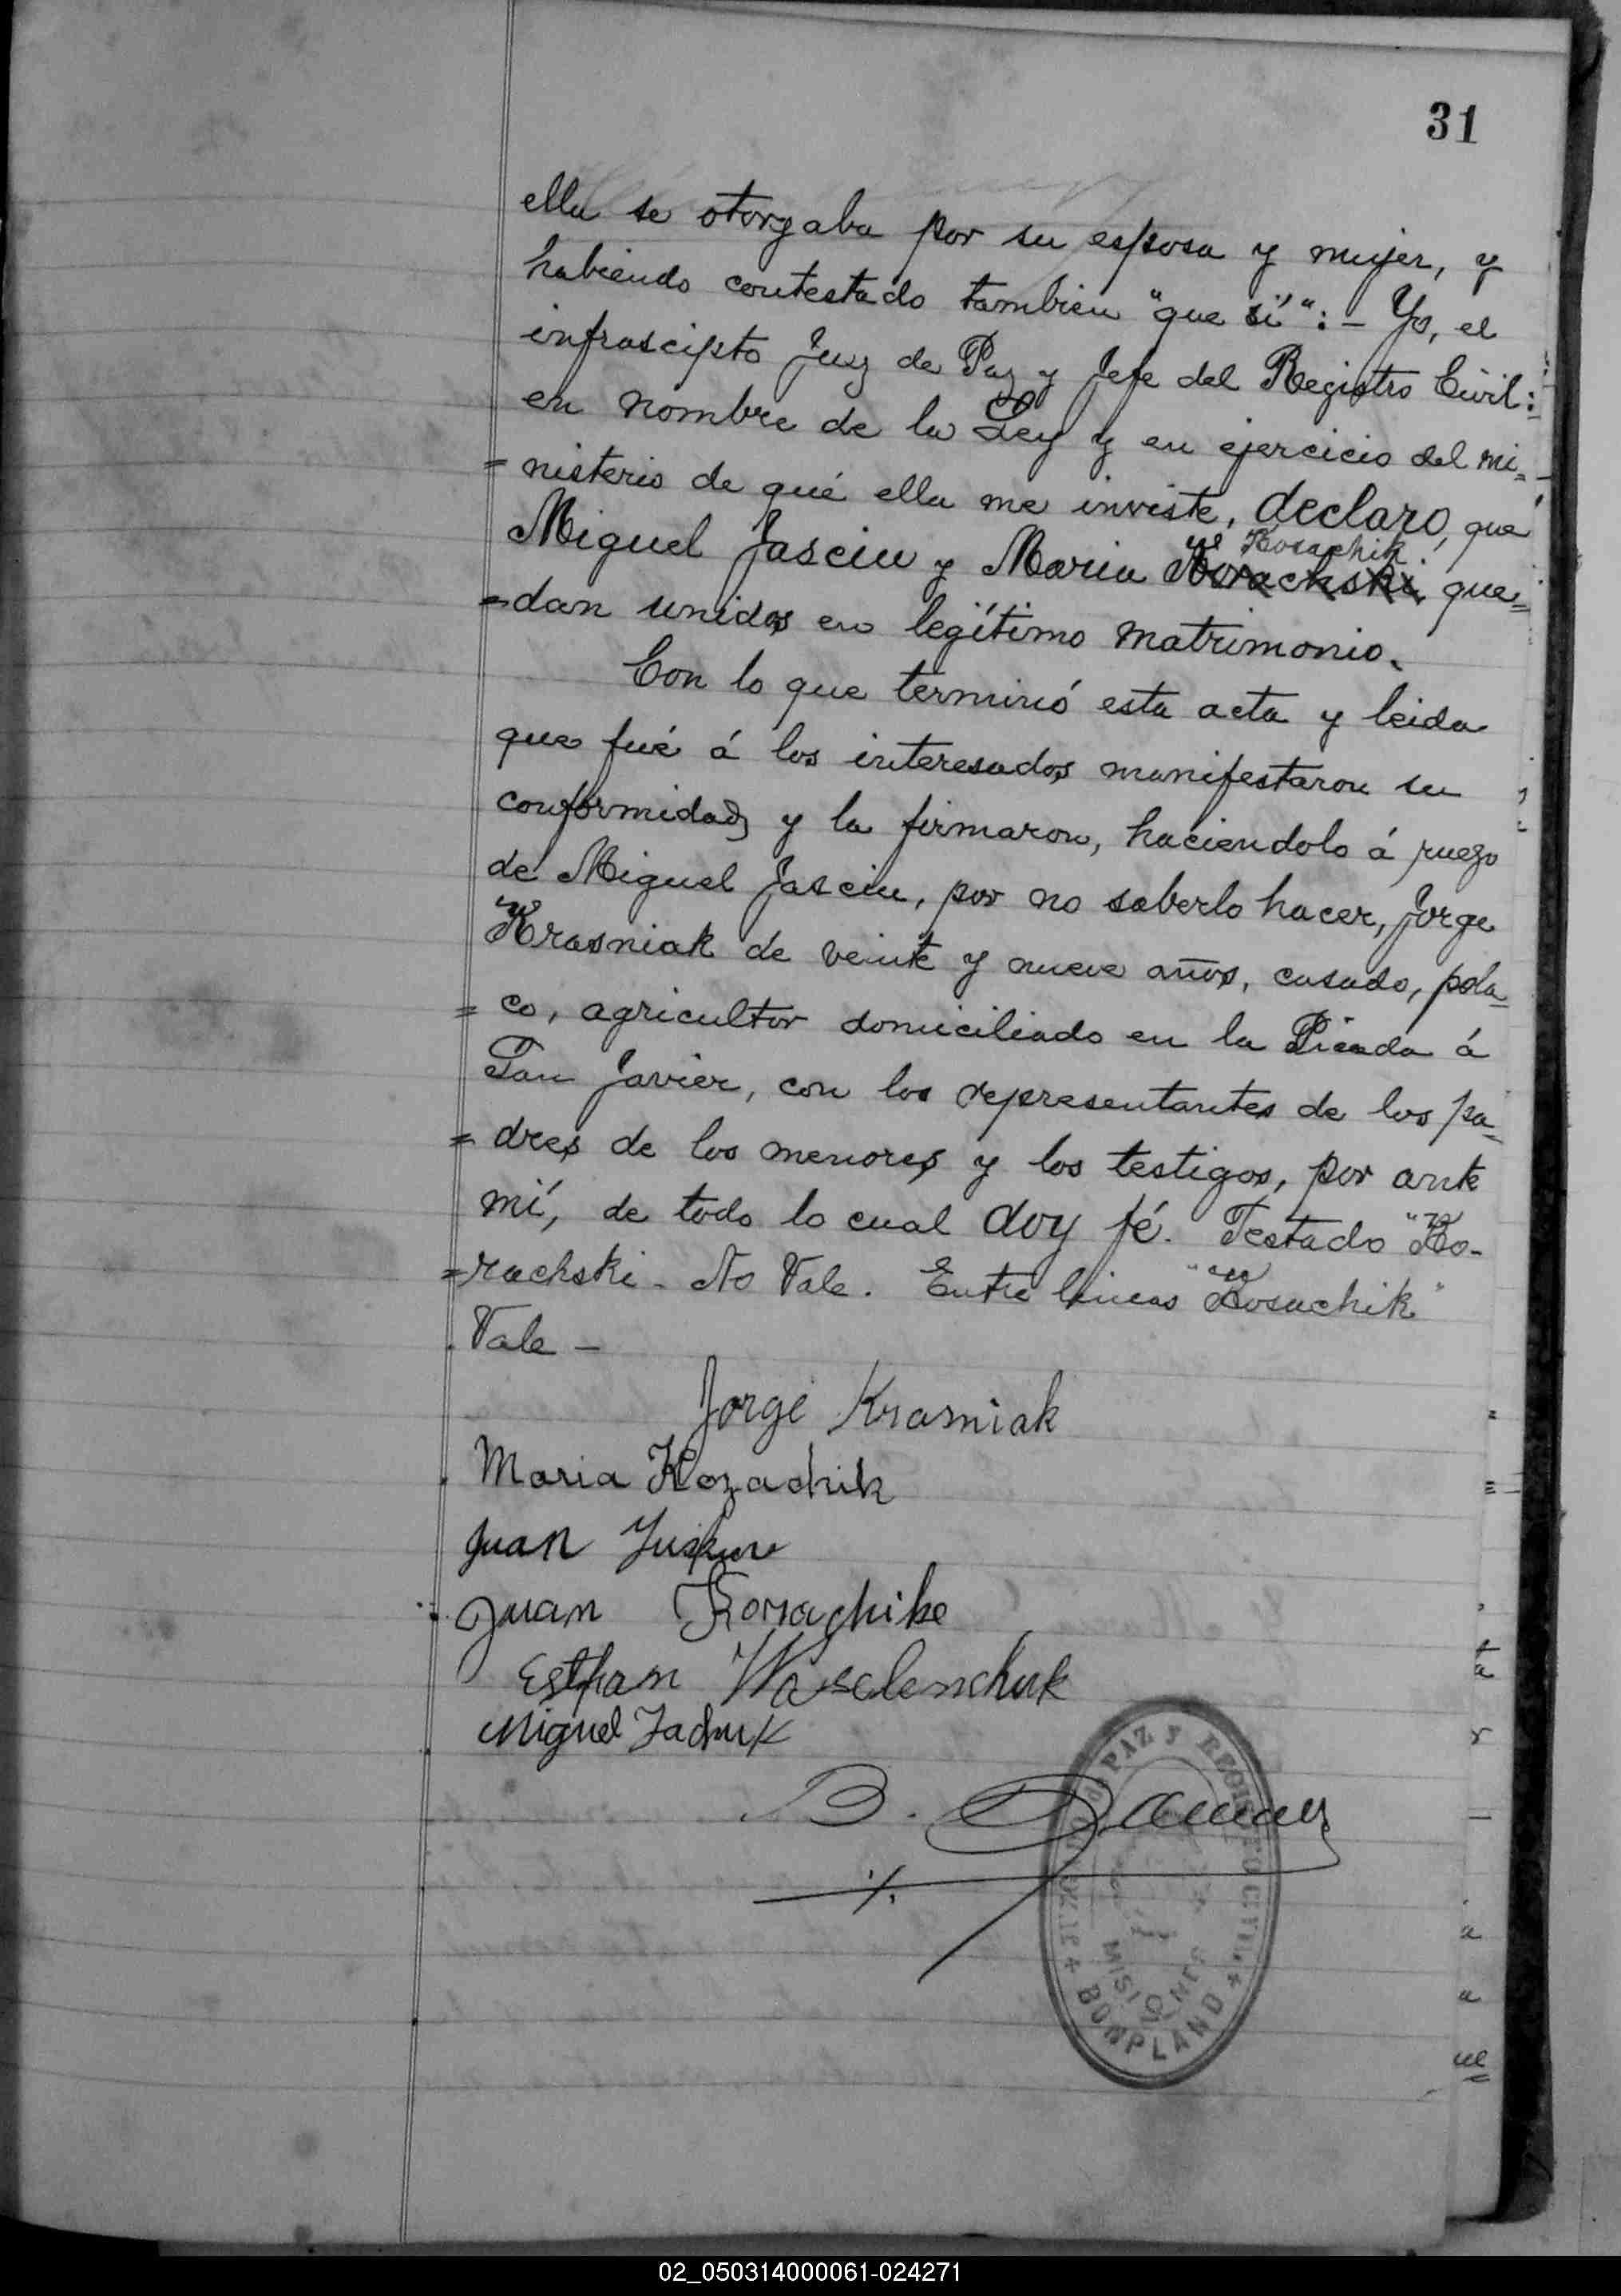 31
ella se otorgaba por su esposa y mujer, y
habiendo contestado tambien "que sí":- Yo, el
infrascipto Juez de Paz y Jefe del Registro Civil:
en nombre de la Ley y en ejercicio del mi=
=nisterio de qué ella me inviste, declaro, que
Kosachik
Miguel Jasciu y Maria Korachski que=
=dan unidos en legítimo matrimonio.
Con lo que terminó esta acta y leida
que fué á los interesados manifestaron su
conformidad y la firmaron, haciendolo á ruego
de Miguel Jasciu, por no saberlo hacer, Jorge
Krasniak de veinte y nueve años, casado, pola=
=co, agricultor domiciliado en la Picada á
San Javier, con los representantes de los pa=
=dres de los menores y los testigos, por ante
mí, de todo lo cual doy fé. Testado "Ko-
=rachski - No Vale. Entre lineas "Kosachik"
Vale -
Jorge Krasniak
Maria Kozachik
Juan
Juan
Estfan Waselenchuk
Miguel
B.
PAZ Y REGISTRO CIVIL
MISIONES
BONPLAND
02_050314000061-024271